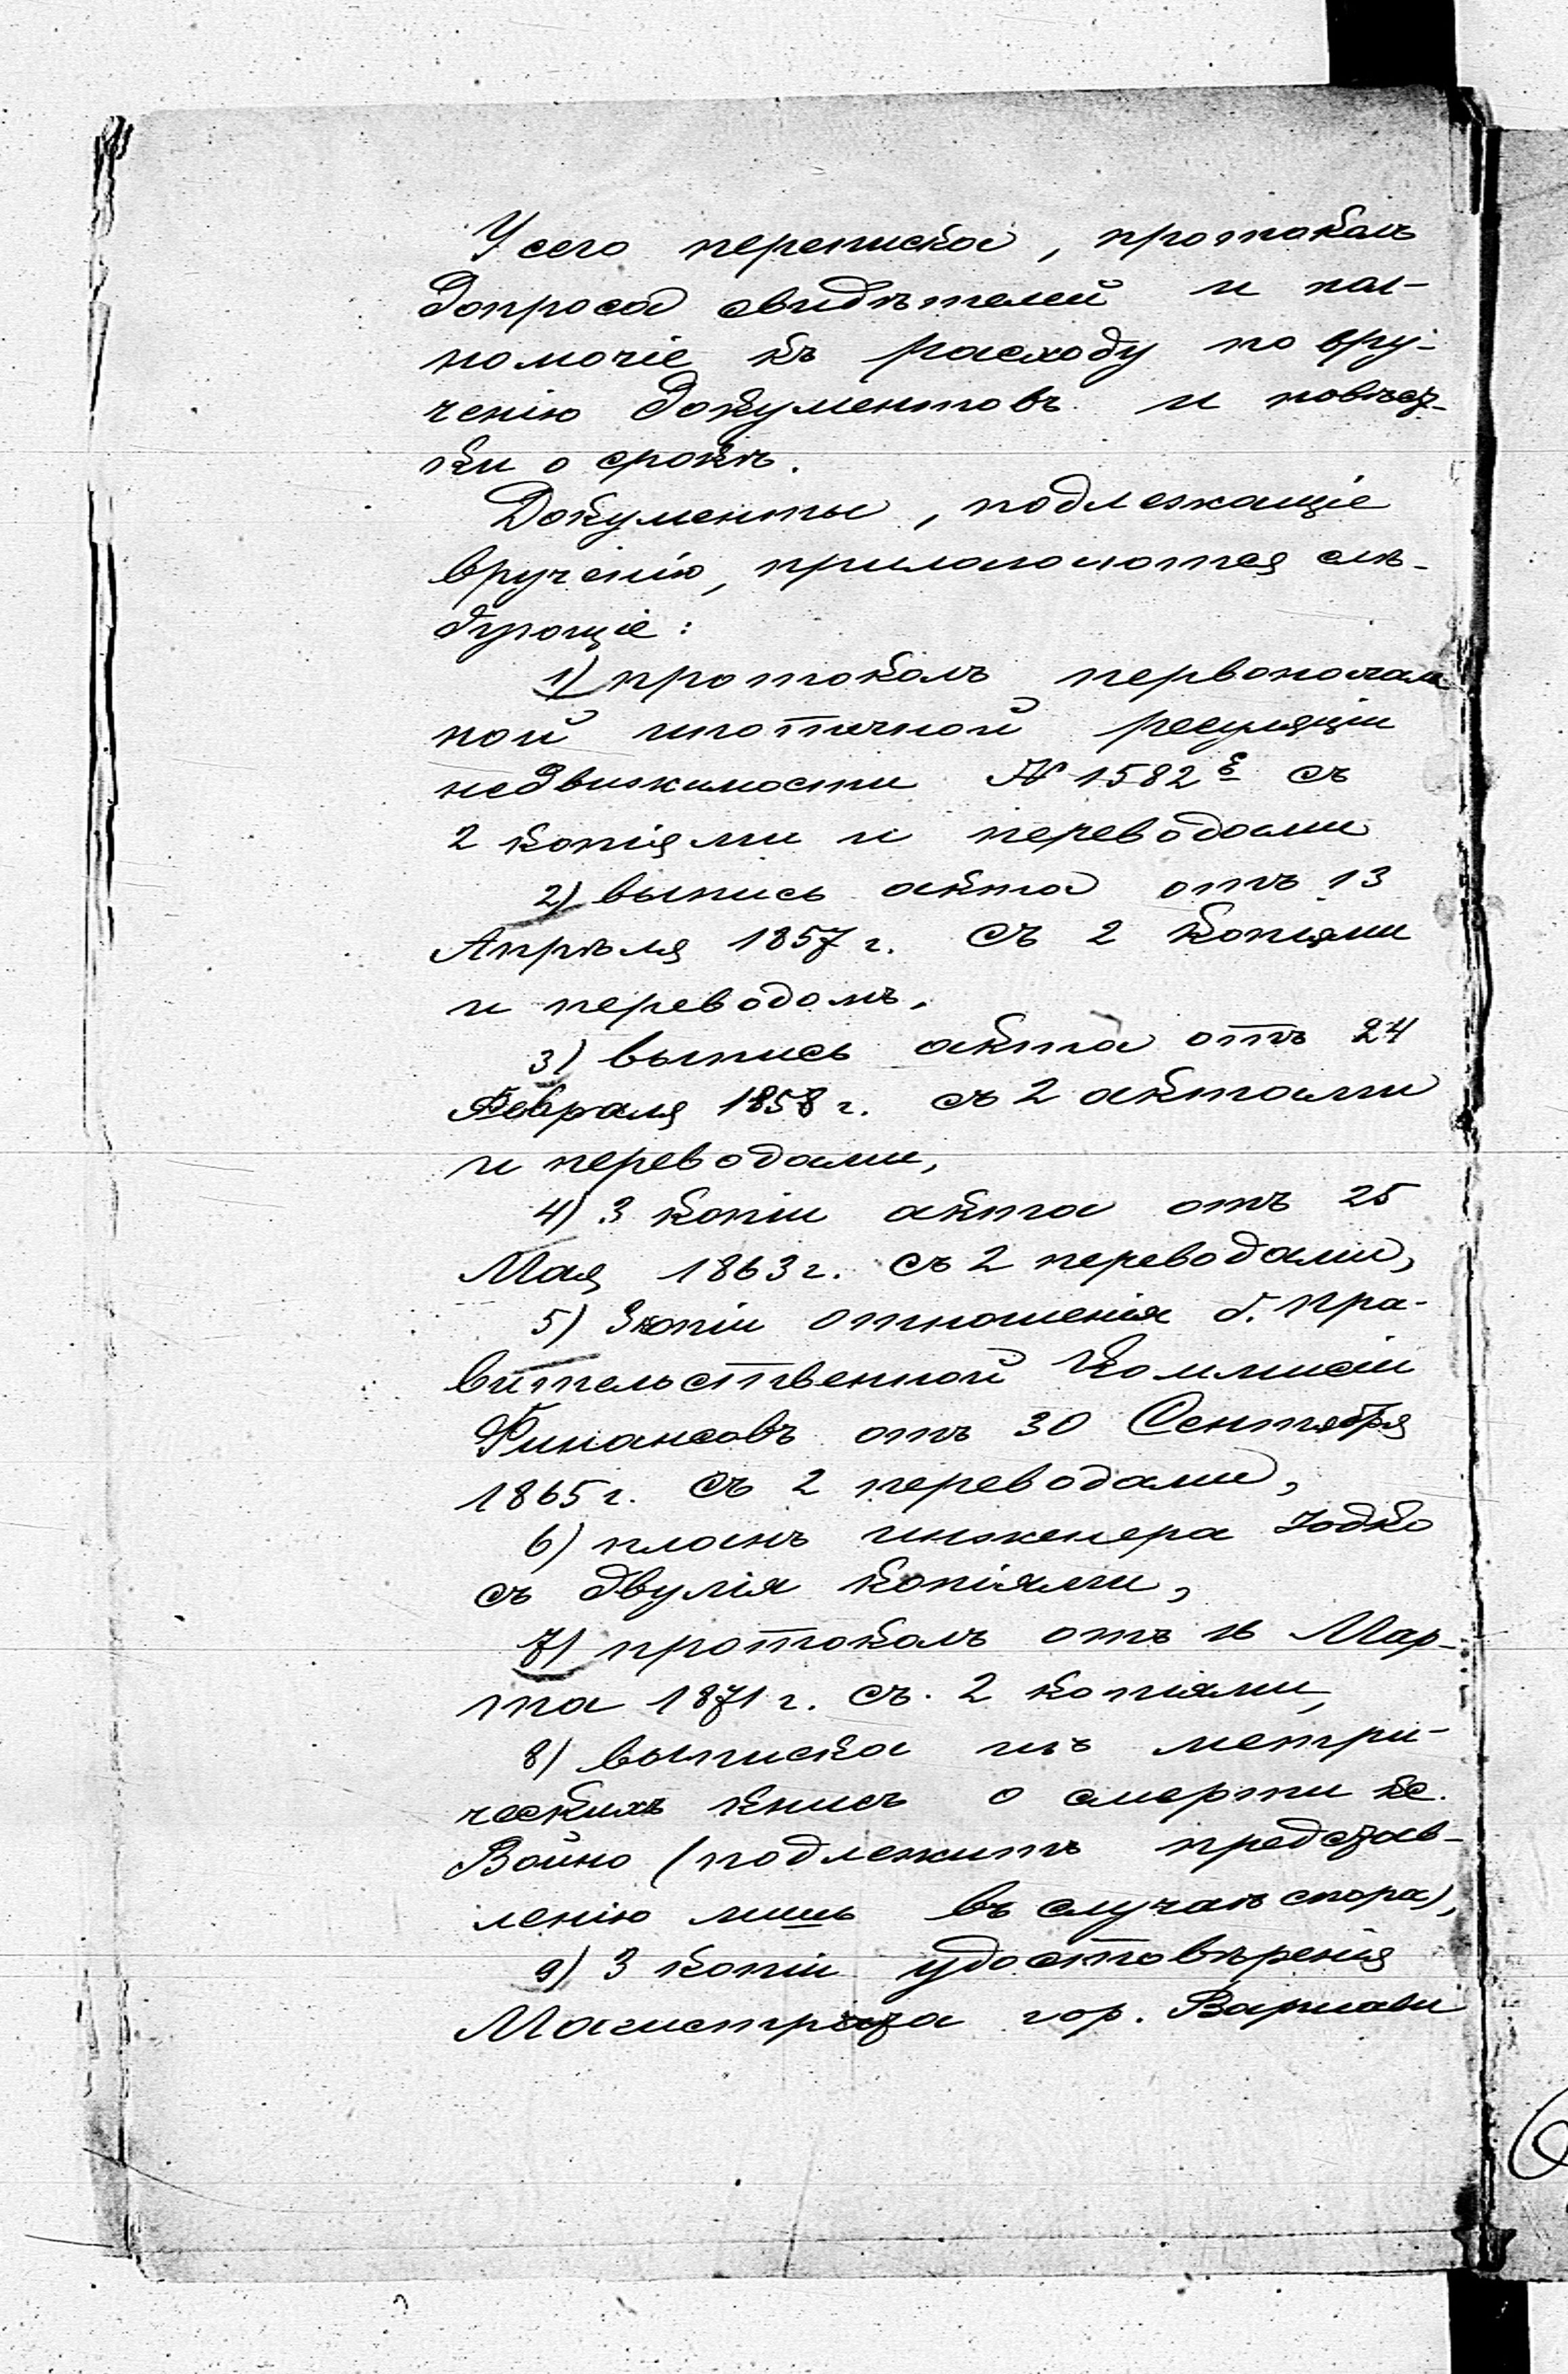 У сего переписка, протоколъ
допроса свидѣтелей и пол-
номочіе къ расходу по вру-
ченію документовъ и повѣст-
ки о срокѣ.
Документы, подлежащіе
врученію, прилагаются слѣ-
дующіе:
1) протоколъ первоначаль
ной ипотечной регуляціи
недвижимости № 1582 Е съ
2 копіями и переводами
2) выпись акта отъ 13
Апрѣля 1857 г. съ 2 копіями
и переводомъ.
3) выпись акта отъ 24
Февраля 1858 г. съ 2 актами
и переводами,
4) 3 копіи акта отъ 25
Мая 1863 г. съ 2 переводами,
5) 3 копіи отношенія б. Пра-
вительственной Коммисіи
Финансовъ отъ 30 Сентября
1865 г. съ 2 переводами,
6) планъ инженера Юдко
съ двумя копіями,
7) протоколъ отъ 16 Мар-
та 1871 г. съ 2 копіями,
8) выписка изъ метри-
ческихъ книгъ о смерти кс.
Войно (подлежитъ представ-
ленію лишь въ случаѣ спора),
9) 3 копіи удостовѣренія
Магистрата гор. Варшавы
6